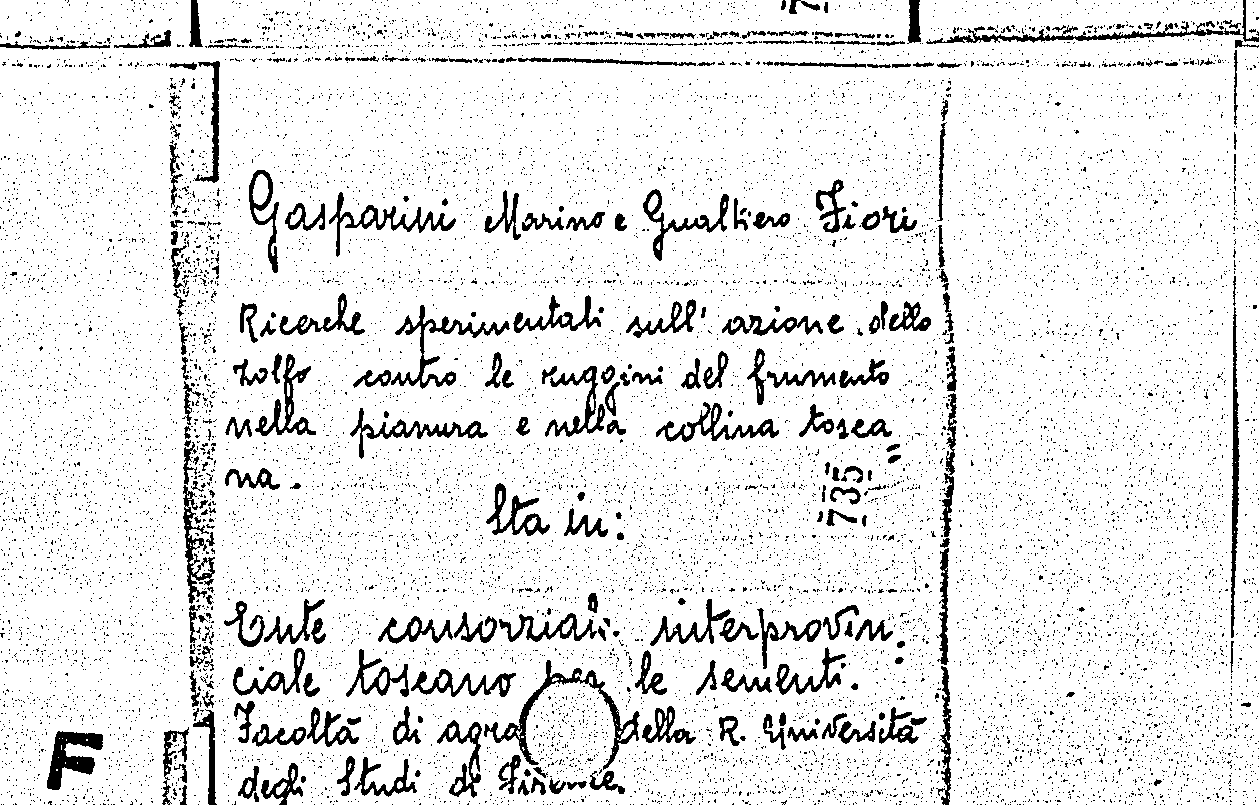 Gasparini Marino e Gualtiero Fiori
Ricerche sperimentali sull' azione dello
zolfo contro le ruggini del frumento
nella pianura e nella collina tosca
na.
735
Sta in:
Ente interprovin
ciale toscano per le sementi.
Facoltà di agra della R. Università
degli Studi di Firenze.
F